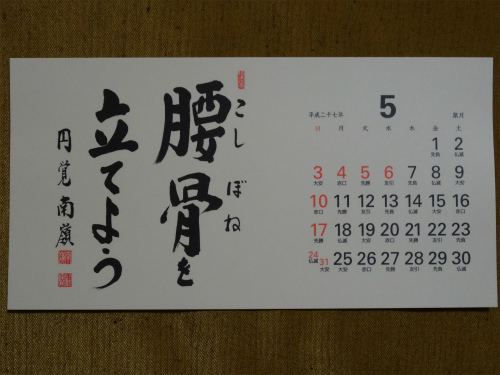 腰骨を
こし ぼね
立てよう
円覚南嶺
平成二十七年 5 皐月
日 月 火 水 木 金 土
1 2
先負 仏滅
3 4 5 6 7 8 9
大安 赤口 先勝 友引 先負 仏滅 大安
10 11 12 13 14 15 16
赤口 先勝 友引 先負 仏滅 大安 赤口
17 18 19 20 21 22 23
先勝 仏滅 大安 赤口 先勝 友引 先負
24 31 25 26 27 28 29 30
仏滅 大安 大安 赤口 先勝 友引 先負 仏滅